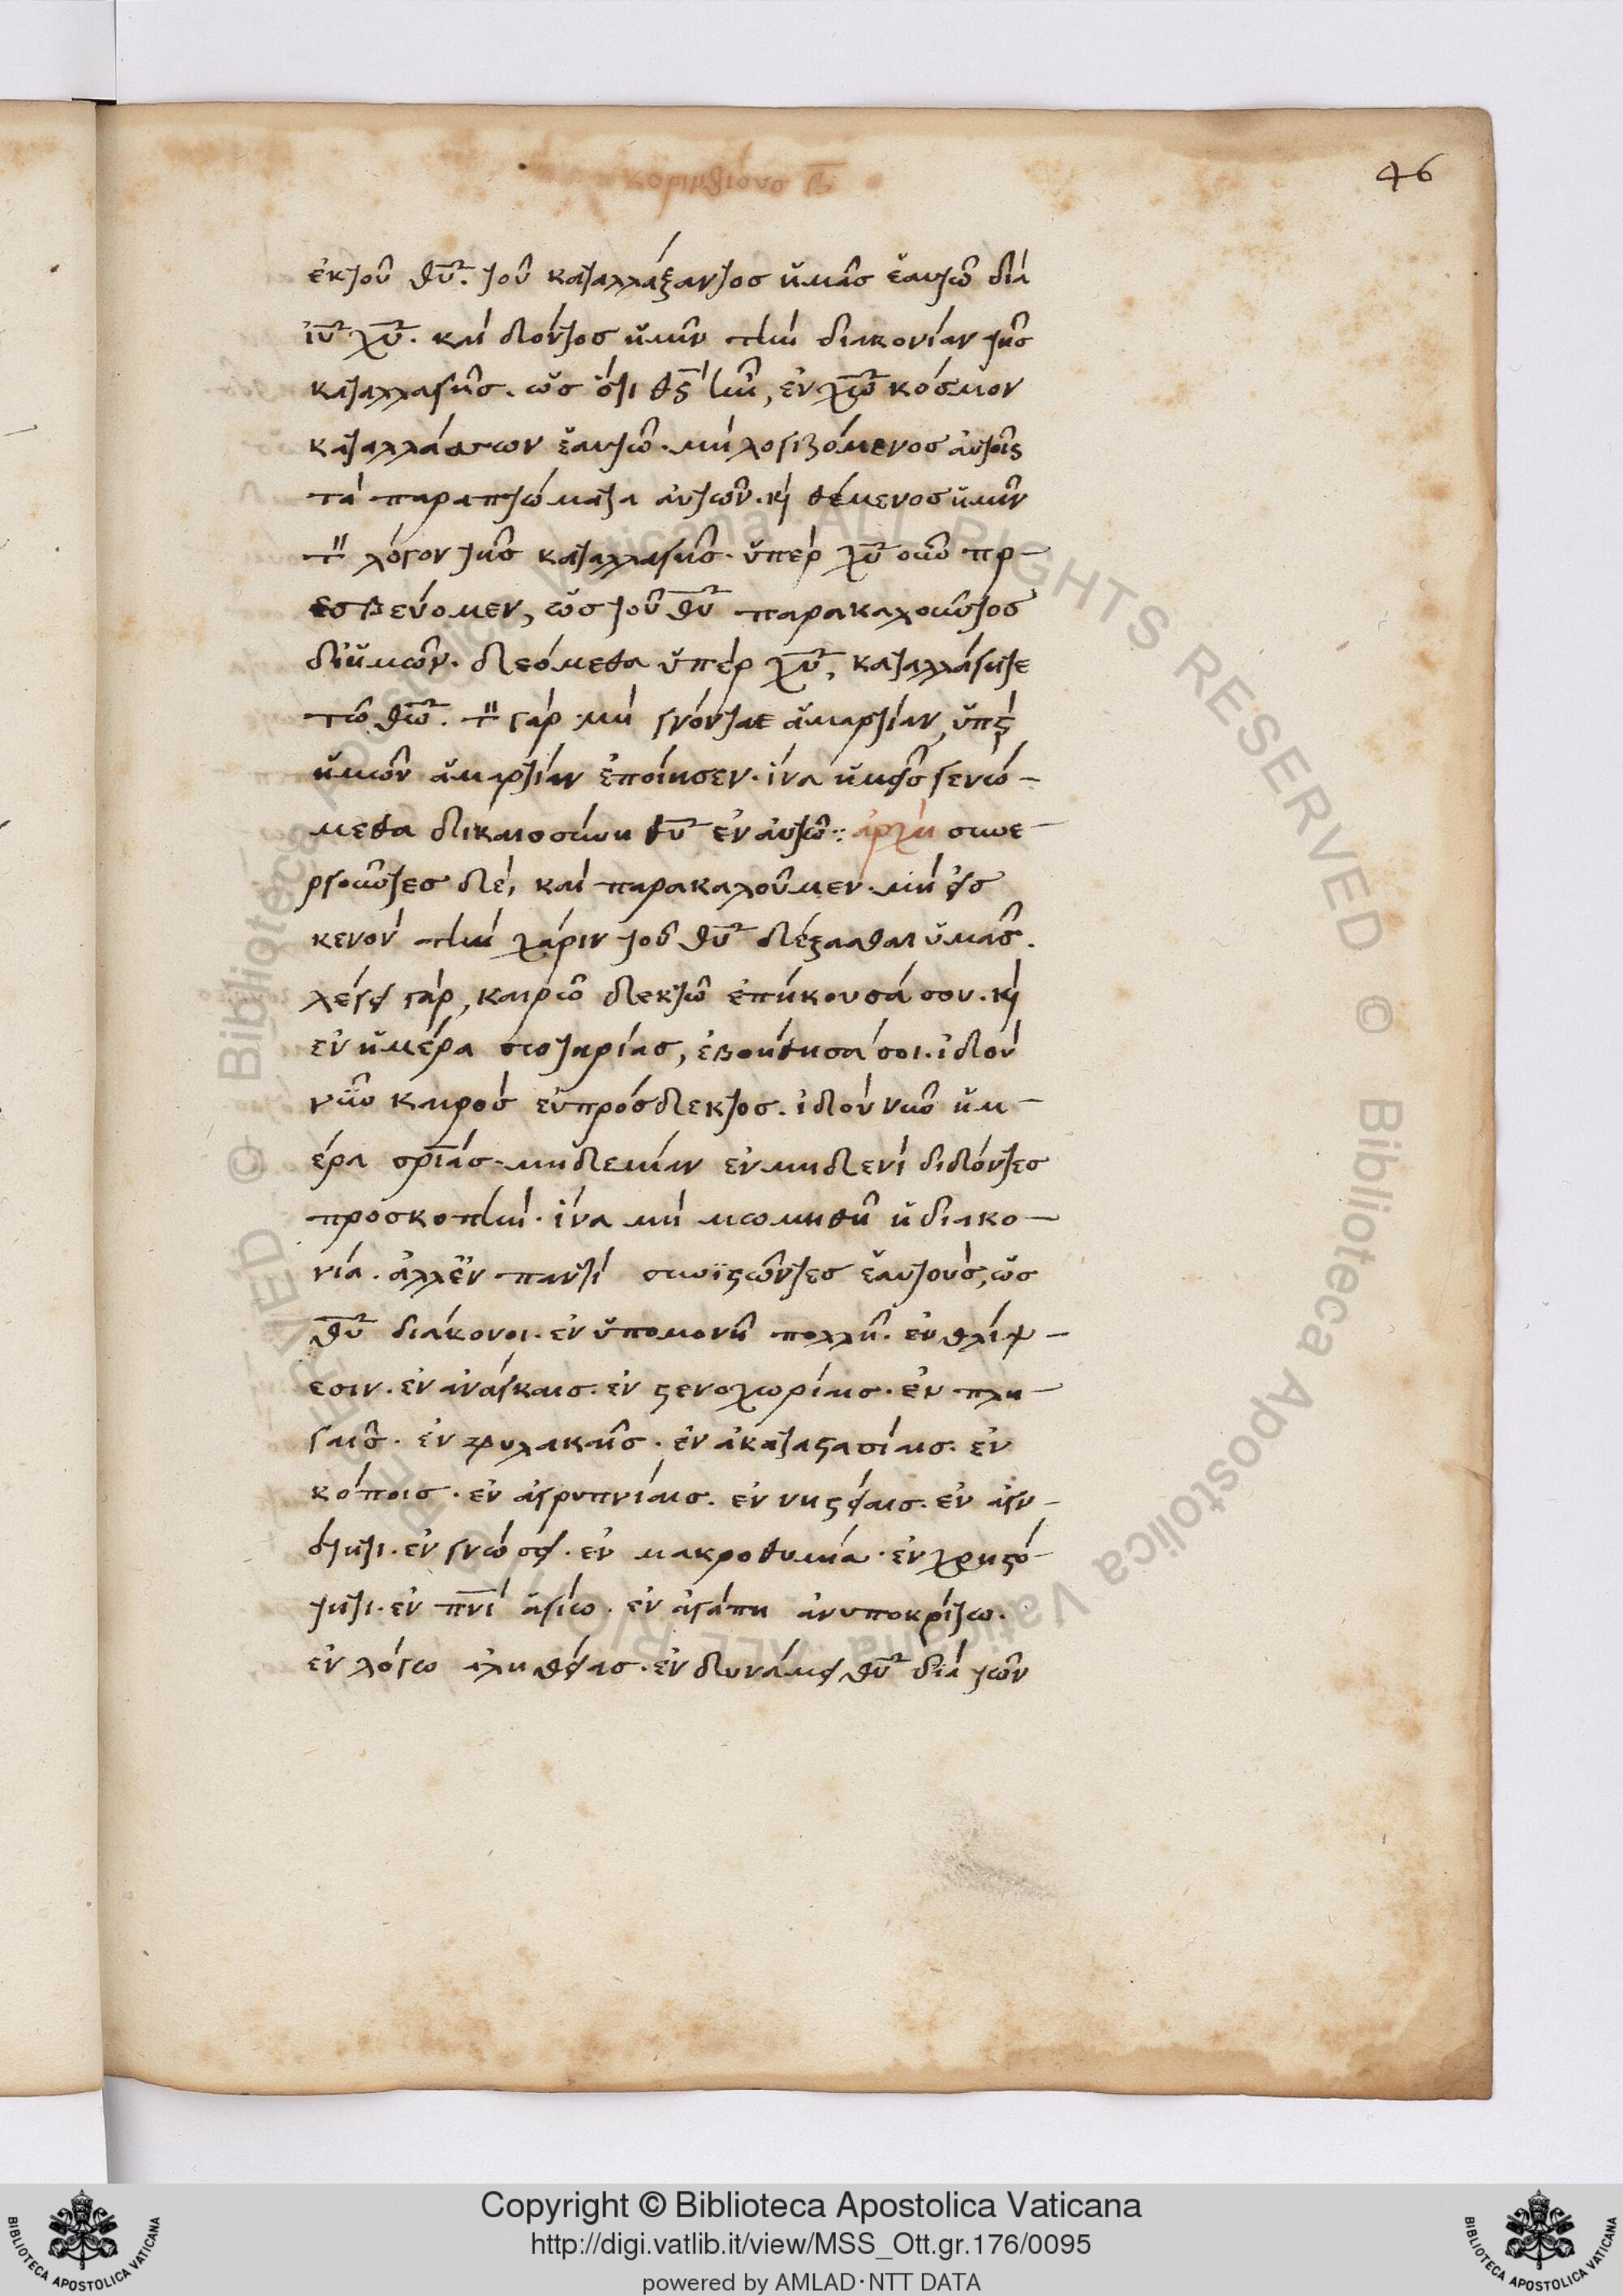 κορινθίους β
46
ἐκ τοῦ θυ. τοῦ καταλλάξαντος ἡμᾶς ἑαυτῶ διὰ
ιυ χυ. καὶ δόντος ἡμῖν τὴν διακονίαν τῆς
καταλλαγῆς. ὡς ὅτι θς ἦν, ἐν χω κόσμον
καταλλάσσων ἑαυτῶ. μὴ λογιζόμενος αὐτοῖς
τὰ παραπτώματα αὐτῶν. κὶ θέμενος ἡμῖν
τὸν λόγον τῆς καταλλαγῆς. ὑπὲρ χυ οὖν πρ-
εσβεύομεν, ὡς τοῦ θυ παρακαλοῦντος
δι ἡμῶν. δεόμεθα ὑπὲρ χυ, καταλλάγητε
τῶ θω. τὸν γὰρ μὴ γνόντα ἁμαρτίαν, ὑπὲρ
ἡμῶν ἁμαρτίαν ἐποίησεν. ἵνα ἡμεῖς γενώ-
μεθα δικαιοσύνη θυ ἐν αὐτῶ: ἀρχὴ συνε-
ργοῦντες δὲ, καὶ παρακαλοῦμεν. μὴ εἰς
κενὸν τὴν χάριν τοῦ θυ δέξασθαι ὑμᾶς.
λέγει γὰρ, καιρῶ δεκτῶ ἐπήκουσά σου. κὶ
ἐν ἡμέρα σωτηρίας, ἐβοήθησά σοι. ἰδοὺ
νῦν καιρὸς εὐπρόσδεκτος. ἰδοὺ νῦν ἡμ-
έρα σριας. μηδεμίαν ἐν μηδενὶ διδόντες
προσκοπὴν. ἵνα μὴ μωμηθῆ ἡ διακο-
νία. ἀλλ ἐν παντὶ συνϊστῶντες ἑαυτοὺς, ὡς
θυ διάκονοι. ἐν ὑπομονῆ πολλῆ. ἐν θλίψ-
εσιν. ἐν ἀνάγκαις. ἐν στενοχωρίαις. ἐν πλη-
γαῖς. ἐν φυλακαῖς. ἐν ἀκαταστασίαις. ἐν
κόποις. ἐν ἀγρυπνίαις. ἐν νηστείαις. ἐν ἁγν-
ότητι. ἐν γνώσει. ἐν μακροθυμία. ἐν χρηστό-
τητι. ἐν πνι ἁγίω. ἐν ἀγάπη ἀνυποκρίτω.
ἐν λόγω ἀληθείας. ἐν δυνάμει θυ διὰ τῶν
© Biblioteca Apostolica Vaticana ALL RIGHTS RESERVED
© Biblioteca Apostolica Vaticana ALL RIGHTS RESERVED
Copyright © Biblioteca Apostolica Vaticana
http://digi.vatlib.it/view/MSS_Ott.gr.176/0095
powered by AMLAD·NTT DATA
BIBLIOTECA APOSTOLICA VATICANA
BIBLIOTECA APOSTOLICA VATICANA